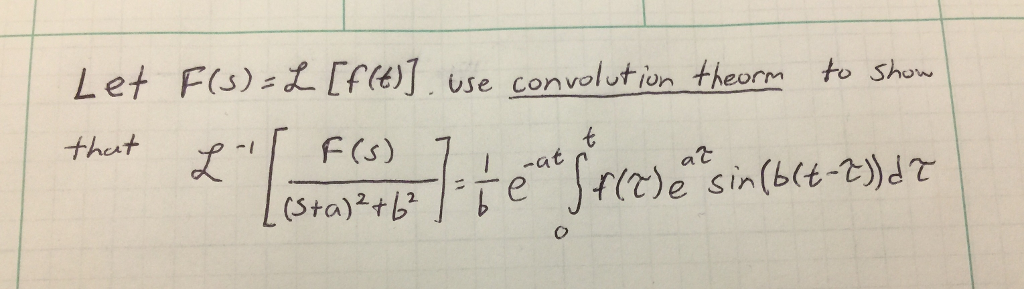 Let F(s) = ℒ [f(t)]. use convolution theorm to show
that ℒ⁻¹ [ F(s) / ((s+a)² + b²) ] = 1/b e^(-at) ∫₀ᵗ f(τ) e^(aτ) sin(b(t-τ)) dτ